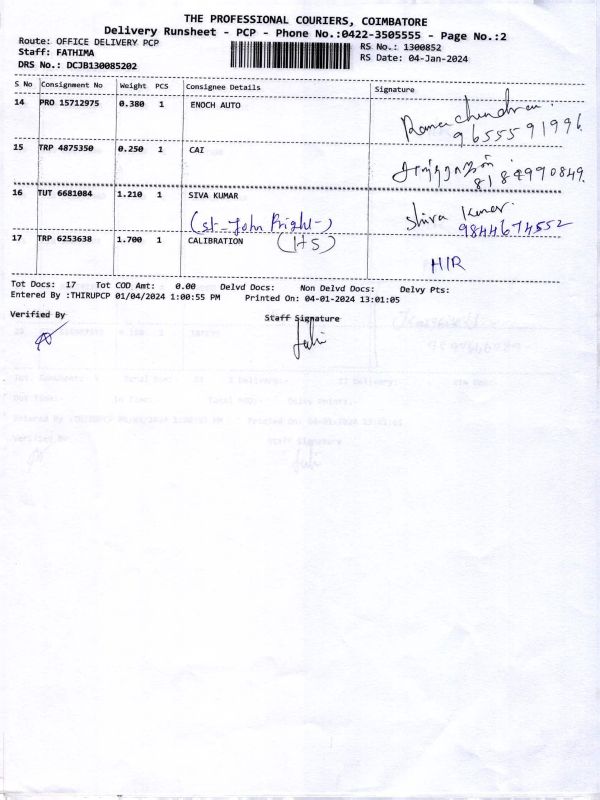 THE PROFESSIONAL COURIERS, COIMBATORE
Delivery Runsheet - PCP - Phone No.:0422-3505555 - Page No.:2
Route: OFFICE DELIVERY PCP RS No.: 1300852
Staff: FATHIMA RS Date: 04-Jan-2024
DRS No.: DCJB130085202
S No Consignment No Weight PCS Consignee Details Signature
14 PRO 15712975 0.380 1 ENOCH AUTO Ramachandran
9655591996
15 TRP 4875350 0.250 1 CAI
8184990849
16 TUT 6681084 1.210 1 SIVA KUMAR Shiva Kumar
(St-John Bright-) 9844674552
17 TRP 6253638 1.700 1 CALIBRATION (HS)
HIR
Tot Docs: 17 Tot COD Amt: 0.00 Delvd Docs: Non Delvd Docs: Delvy Pts:
Entered By :THIRUPCP 01/04/2024 1:00:55 PM Printed On: 04-01-2024 13:01:05
Verified By Staff Signature